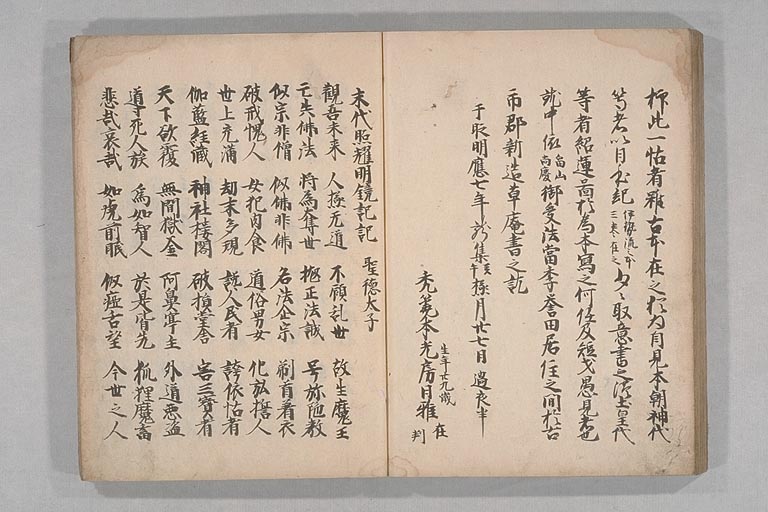 抑此一帖者雖古本在之於為自見本朝神代
等者以日本紀伊勢流之本三巻在之少々取意書之後土皇代
等者紹運啚於為本寫之何任及短才愚見書也
就中依畠山尚慶御受法當季誉田居住之間於古
市郡新造草庵書之訖
于时明應七年
月廿七日過夜半
禿菴本光房日雅在判
生年廿九歳
末代照耀明鏡記記 聖徳太子
觀吾未来 人極无道 不顧乱世 故生魔王
亡失佛法 将為奪世 极正法誠 号弥陁教
似宗非僧 似佛非佛 名法企宗 剃首着衣
破戒愧人 女犯肉食 道俗男女 化訟摺人
世上充滿 劫末多現 説人民者 誇依怙者
伽藍経蔵 神社楼閣 破損堂舎 害三寳者
天下欲覆 無間獄金 阿鼻亭主 外道悪盗
道士死人族 為如智人 於是胷先 狐狸魔畜
悲哉哀哉 如虎前眠 似痓古望 今世之人